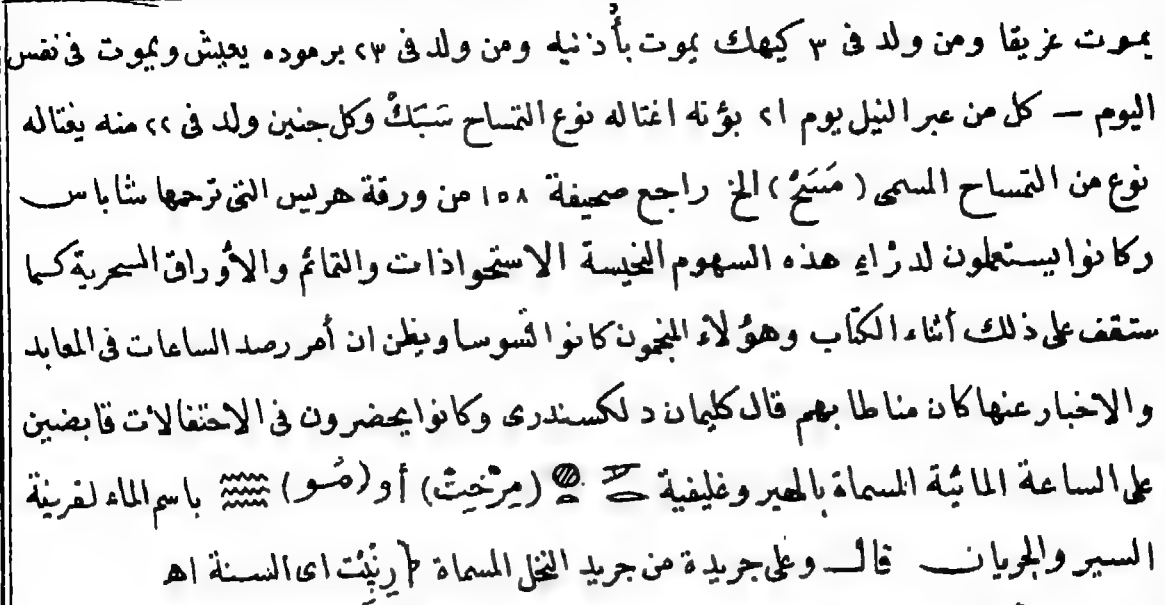 يموت غريقا ومن ولد فى ٣ كيهك يموت بأُذنيه ومن ولد فى ٢٣ برموده يعيش ويموت فى نفس
اليوم — كل من عبر النيل يوم ٢١ بؤنه اغتاله نوع التمساح سَبَكْ وكل جنين ولد فى ٢٢ منه يغتاله
نوع من التمساح المسمى (مَسَحْ) الخ راجع صحيفة ١٥٨ من ورقة هريس التى ترجمها شاباس
وكانوا يستعملون لدرْاءِ هذه السهوم النحيسة الاستحواذات والتمائم والأوراق السحرية كما
ستقف على ذلك أثناء الكتاب وهؤلاء المنجمون كانوا قسوسا ويظن ان أمر رصد الساعات فى المعابد
والاخبار عنها كان مناطا بهم قال كليمان دلكسندرى وكانوا يحضرون فى الاحتفالات قابضين
على الساعة المائية المسماة بالهيروغليفية (مِرْخِيتْ) أو (مُو) باسم الماء لقرينة
السير والجريان قال وعلى جريدة من جريد النخل المسماة رِنْپِتْ اى السنة اهـ